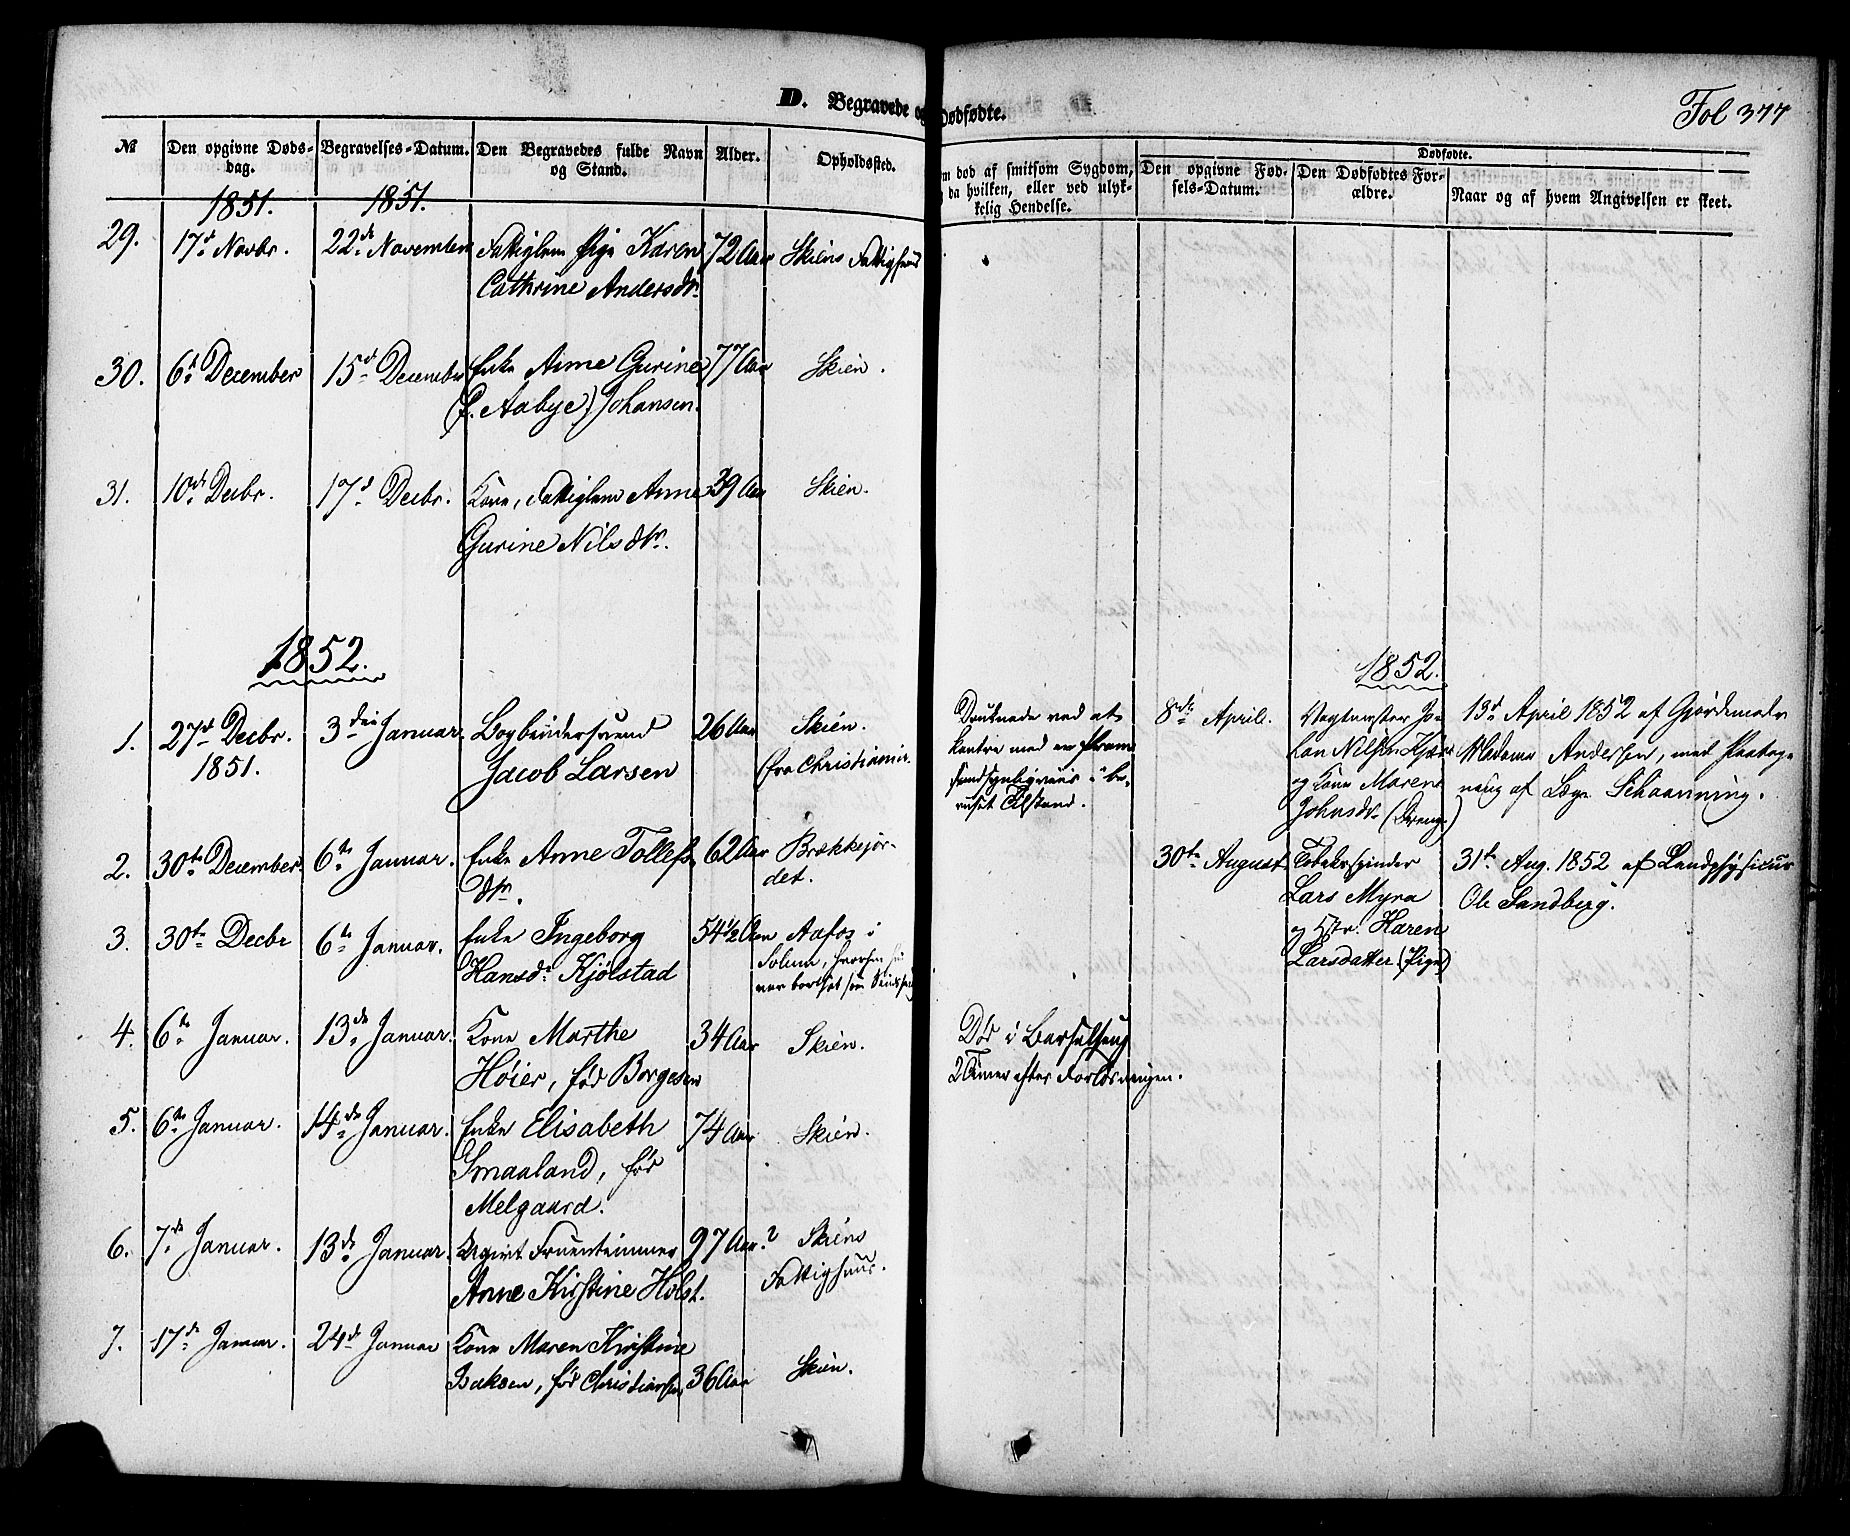 D. Begravede og Dødfødte.
Fol 377
№
Den opgivne Døds-
dag.
Begravelses-Datum.
Den Begravedes fulde Navn
og Stand.
Alder.
Opholdssted.
m død af smitsom Sygdom,
da hvilken, eller ved ulyk-
kelig Hendelse.
Dødfødte.
Den opgivne Fød-
sels-Datum.
Den Dødfødtes For-
ældre.
Naar og af hvem Angivelsen er skeet.
1851.
1851.
29. 17de Novbr. 22de November Fattiglem Pige Karen 72 Aar Skiens Fattighuus
Cathrine Andersdtr.
30. 6te December 15de December Enke Anne Gurine 77 Aar Skien.
(f. Aabye) Johansen.
31. 10de Decbr. 17de Decbr. Kone, Fattiglem Anne 39 Aar Skien.
Gurine Nilsdtr.
1852.
1. 27de Decbr. 3die Januar. Bogbindersvend 26 Aar Skien.
1851. Jacob Larsen (fra Christiania.
2. 30te December. 6te Januar. Enke Anne Tollefs 62 Aar Brækkejor-
dtr. det.
3. 30te Decbr 6te Januar. Enke Ingeborg 54½ Aar Aafos i
Hansdr. Kjølstad Solum, hvorhen
var bortsat som
4. 6te Januar. 13de Januar. Kone Marthe 34 Aar Skien.
Høier, fød Borgesen
5. 6te Januar. 14de Januar. Enke Elisabeth 74 Aar Skien.
Smaaland, fød
Melgaard.
6. 7de Januar. 13de Januar. Ugivt Fruentimmer 97 Aar.? Skiens
Anne Kirstine Holst. Fattighuus.
7. 17de Januar. 24de Januar Kone Maren Kirstine
Baksen, fød Christiansen 36 Aar Skien.
Druknede ved at
kantre med en Pram
i be-
ruset Tilstand.
Død i Barselseng
2 Timer efter Forløsningen.
1852.
8de April. Vagtmester Jo- 13de April 1852 af Gjordemoder
han Nilsen Kjær Madame Andersen, med Paateg-
og Kone Maren ning af Læge Schaanning.
Johnsdr. (Dreng.)
30te August Tobakspinder 31te Aug. 1852 af Landphysicus
Lars Myra Ole Sandberg.
og Karen
Larsdatter (Pige)